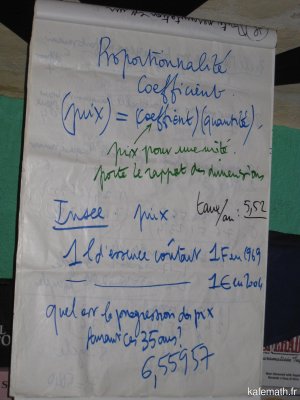 Proportionnalité
Coefficient.
(prix) = (coefficient)(quantité).
prix pour une unité
porte le rapport des dimensions
Insee. prix.
taux/an: 5,52
1 l d'essence coûtant 1F en 1969
— ———— 1€ en 2004
quel est la progression des prix
durant ces 35 ans?
6,55957
kafemath.fr